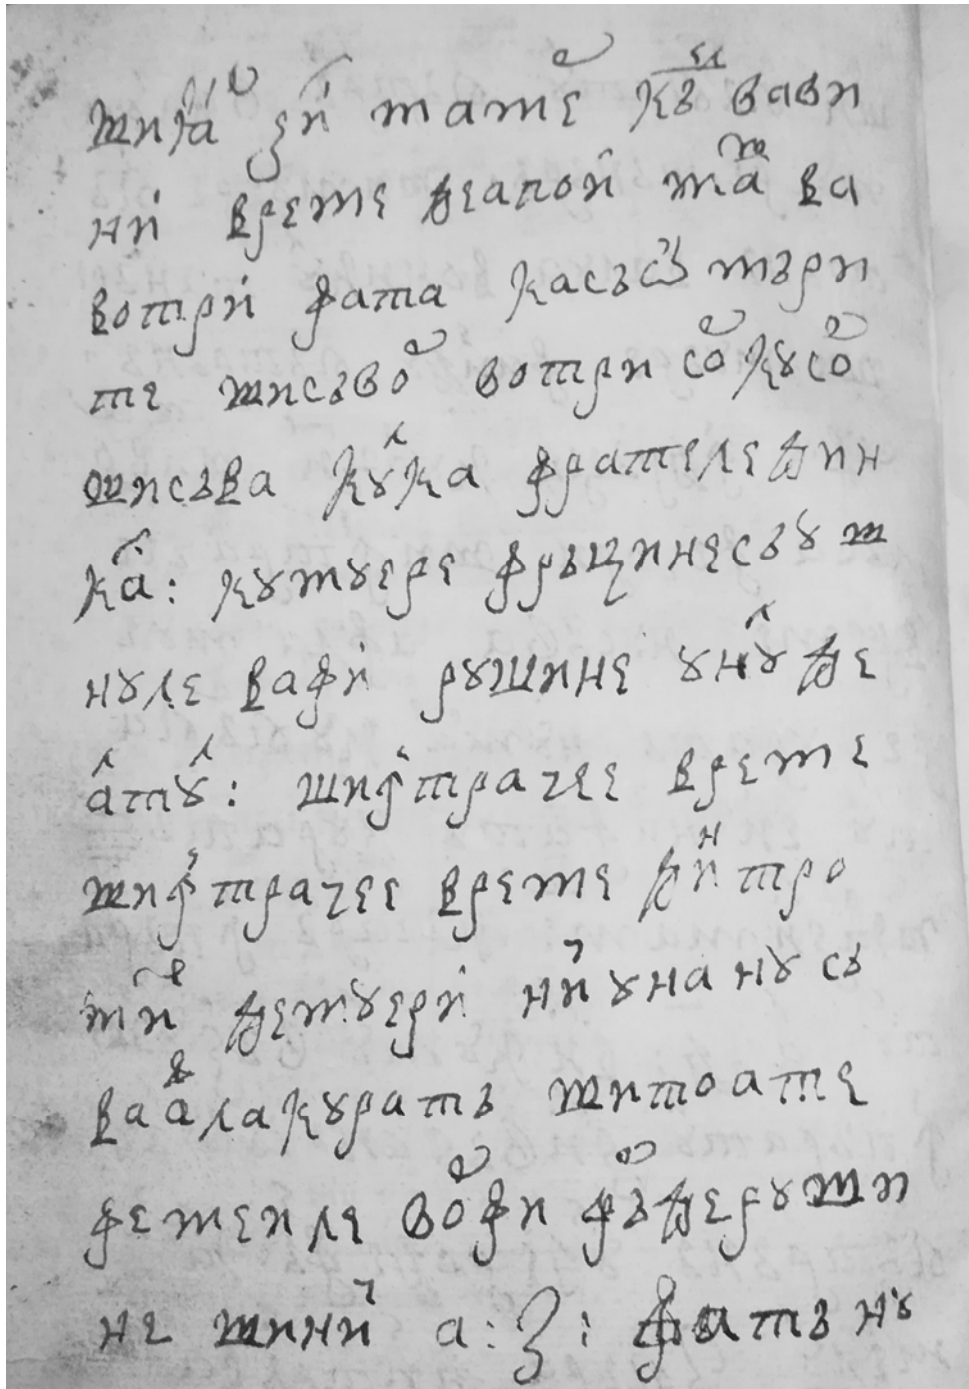 шиꙗ̆ зи тоатѣ къ вави
ни време де апои та ва
вотри фата касъсъ мъри
те шисъво вотри со кусо
шисъва кулка фрателе дин
ка: кумуере фръцинесъ уш
нуле вафи рушине унул де
алтул: шиф трачее време
шиф трачее време дин тро
ми демуери ни уна ну съ
ва афла куратъ шитоате
фемеиле вофи фъ де руши
не шини а: з: фатъ ну